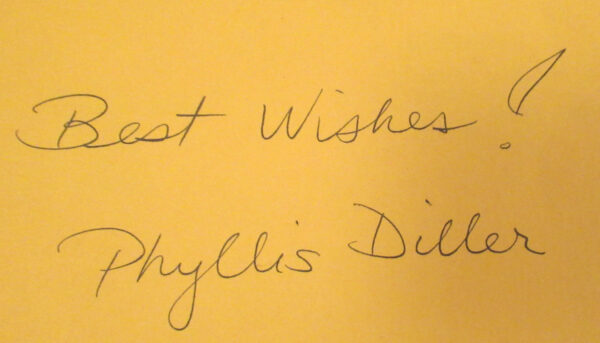 Best Wishes!
Phyllis Diller